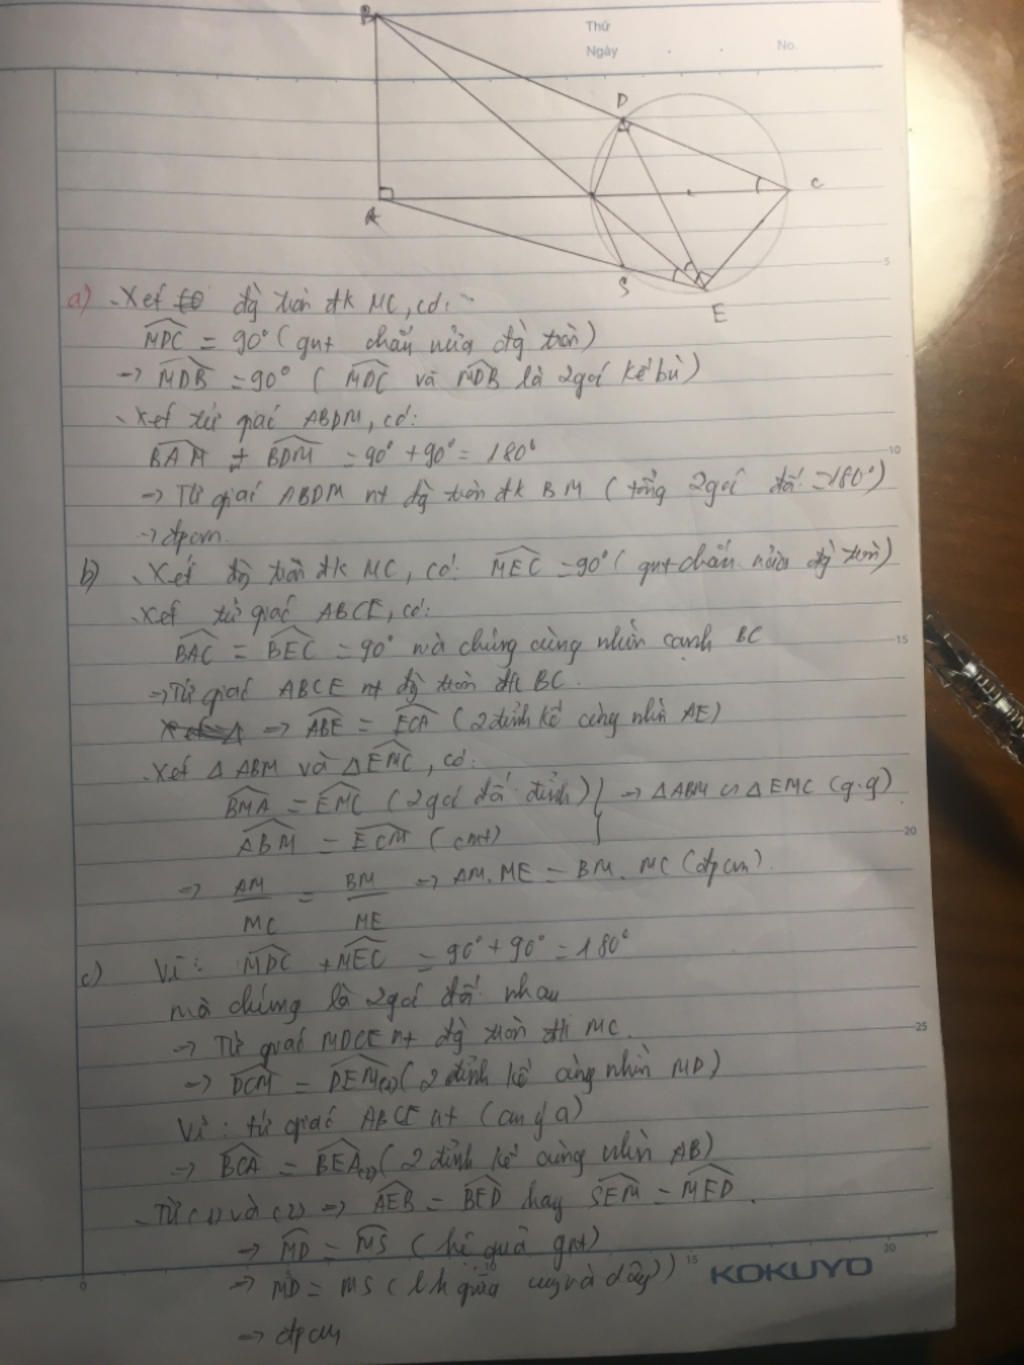 B
Thứ
Ngày . . No.
D
C
A
S
E
5
a) - Xét đg tròn đk MC, có:
MDC = 90° (gnt chắn nửa đg tròn)
-> MDB = 90° ( MDC và MDB là 2 góc kề bù)
- Xét tứ giác ABDM, có:
BAM + BDM = 90° + 90° = 180°
10
-> Tứ giác ABDM nt đg tròn đk BM ( tổng 2 góc đối = 180°)
-> đpcm.
b) - Xét đg tròn đk MC, có: MEC = 90° ( gnt chắn nửa đg tròn)
- Xét tứ giác ABCE, có:
BAC = BEC = 90° mà chúng cùng nhìn cạnh BC
15
-> Tứ giác ABCE nt đg tròn đk BC.
=> ABE = ECA ( 2 đỉnh kề cùng nhìn AE)
- Xét Δ ABM và Δ EMC, có:
BMA = EMC ( 2 góc đối đỉnh) } -> Δ ABM ∽ Δ EMC (g.g)
ABM = ECM ( cmt)
20
=> AM/MC = BM/ME -> AM. ME = BM. MC (đpcm).
c) Vì: MDC + MEC = 90° + 90° = 180°
mà chúng là 2 góc đối nhau
-> Tứ giác MDCE nt đg tròn đk MC.
25
-> DCM = DEM(1) ( 2 đỉnh kề cùng nhìn MD)
Vì: tứ giác ABCE nt (cm ý a)
-> BCA = BEA(2) ( 2 đỉnh kề cùng nhìn AB)
- Từ (1) và (2) => AEB = BED hay SEM = MED.
-> MD = MS ( hệ quả gnt)
-> MD = MS ( lh giữa cung và dây)
-> đpcm
0
10
15
20
KOKUYO